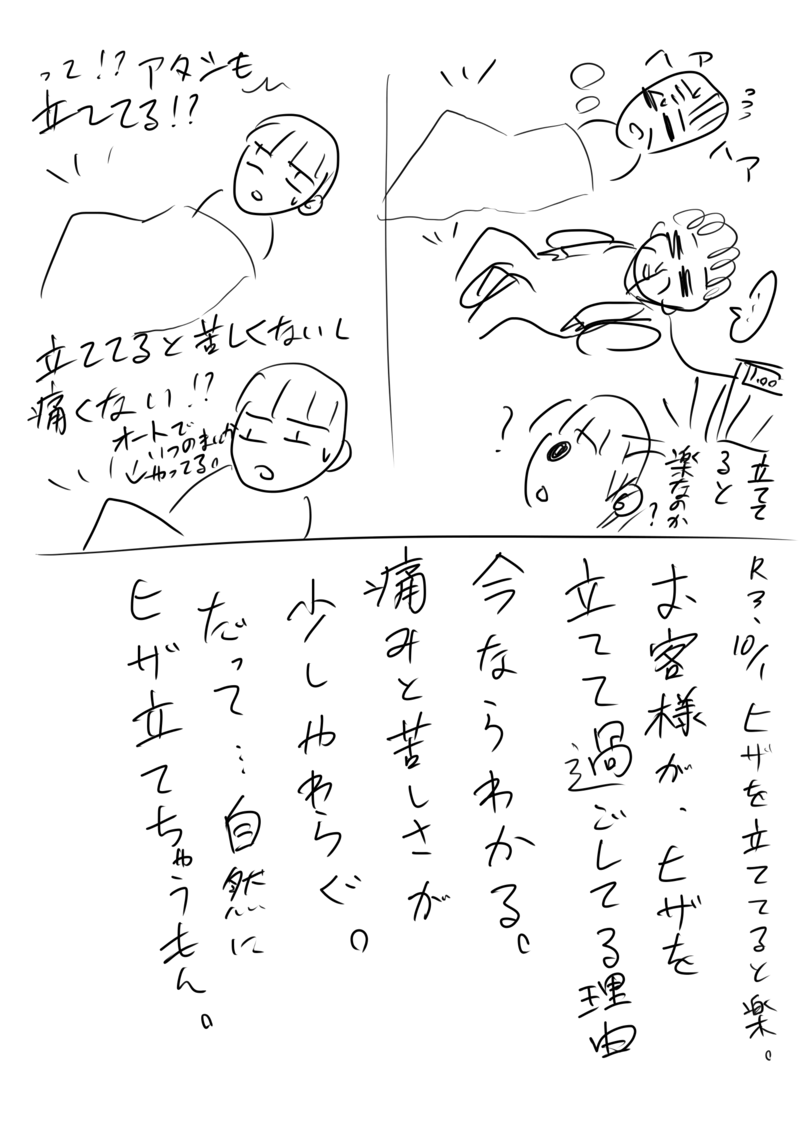 ハァ
ハァ
…
100
?
立てて
ると
楽なのか
?
って!?アタシも
立ててる!?
立ててると苦しくないし
痛くない!?
オートで
いつのまにか
やってる。
R3.10/1 ヒザを立ててると楽。
お客様が、ヒザを
立てて過ごしてる理由
今ならわかる。
痛みと苦しさが
少しやわらぐ。
だって…自然に
ヒザ立てちゃうもん。